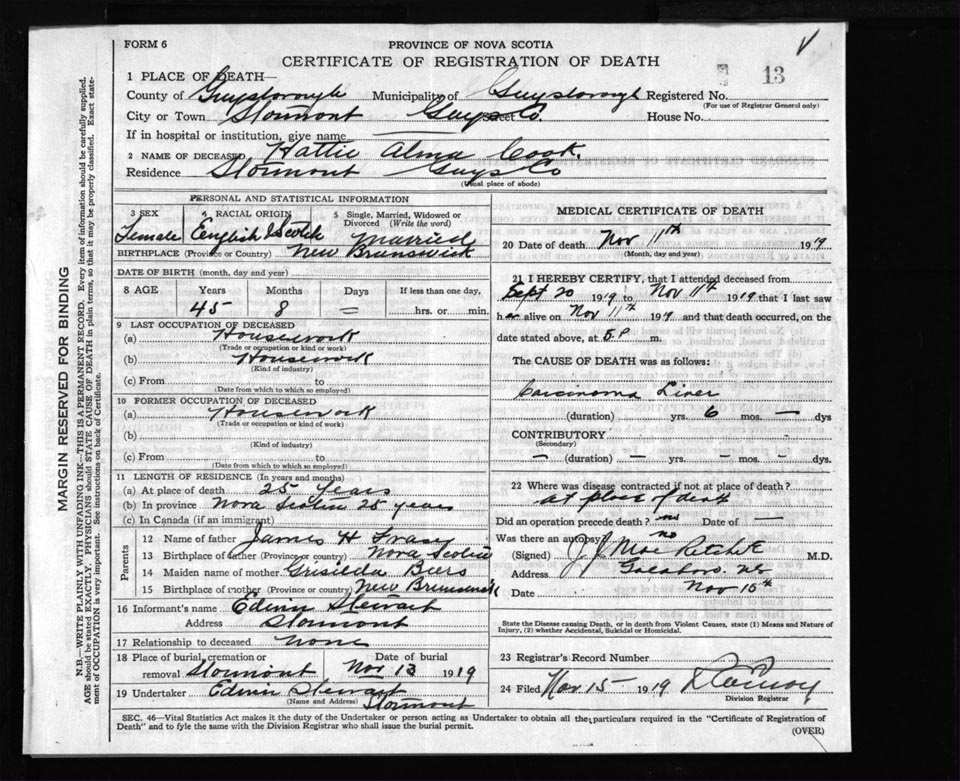 FORM 6
PROVINCE OF NOVA SCOTIA
CERTIFICATE OF REGISTRATION OF DEATH
13
1 PLACE OF DEATH—
County of Guysborough Municipality of Guysborough Registered No.
(For use of Registrar General only)
City or Town Stormont Guys Co Street House No.
If in hospital or institution, give name
2 NAME OF DECEASED Hattie Alma Cook.
Residence Stormont Guys Co
(Usual place of abode)
PERSONAL AND STATISTICAL INFORMATION
3 SEX 4 RACIAL ORIGIN 5 Single, Married, Widowed or Divorced (Write the word)
Female English & Scotch Married
BIRTHPLACE (Province or Country) New Brunswick
DATE OF BIRTH (month, day and year)
8 AGE Years Months Days If less than one day,
45 8 — hrs. or min.
9 LAST OCCUPATION OF DECEASED
(a) Housework
(Trade or occupation or kind of work)
(b) Housework
(Kind of industry)
(c) From to
(Date from which to which so employed)
10 FORMER OCCUPATION OF DECEASED
(a) Housework
(Trade or occupation or kind of work)
(b)
(Kind of industry)
(c) From to
(Date from which to which so employed)
11 LENGTH OF RESIDENCE (In years and months)
(a) At place of death 25 years
(b) In province Nova Scotia 25 years
(c) In Canada (if an immigrant)
Parents
12 Name of father James H Fraser
13 Birthplace of father (Province or country) Nova Scotia
14 Maiden name of mother Grisilda Beers
15 Birthplace of mother (Province or country) New Brunswick
16 Informant's name Edwin Stewart
Address Stormont
17 Relationship to deceased None
18 Place of burial, cremation or removal Stormont Date of burial Nov 13 1919
19 Undertaker Edwin Stewart
(Name and Address) Stormont
MEDICAL CERTIFICATE OF DEATH
20 Date of death Nov 11th 1919
(Month, day and year)
21 I HEREBY CERTIFY, that I attended deceased from
Sept 20 1919 to Nov 11th 1919 that I last saw
her alive on Nov 11th 1919 and that death occurred, on the
date stated above, at 5 P m.
The CAUSE OF DEATH was as follows:
Carcinoma Liver
(duration) yrs. 6 mos. — dys
CONTRIBUTORY
(Secondary)
— (duration) — yrs. — mos. — dys.
22 Where was disease contracted if not at place of death?
At place of death
Did an operation precede death? no Date of —
Was there an autopsy? no
(Signed) J J Mac Ritchie M.D.
Address Goldboro, NS
Date Nov 15th
State the Disease causing Death, or in death from Violent Causes, state (1) Means and Nature of Injury, (2) whether Accidental, Suicidal or Homicidal.
23 Registrar's Record Number
24 Filed Nov 15 1919
Division Registrar
SEC. 46—Vital Statistics Act makes it the duty of the Undertaker or person acting as Undertaker to obtain all the particulars required in the "Certificate of Registration of
Death" and to fyle the same with the Division Registrar who shall issue the burial permit.
(OVER)
MARGIN RESERVED FOR BINDING
N.B.—WRITE PLAINLY WITH UNFADING INK—THIS IS A PERMANENT RECORD. Every item of information should be carefully supplied.
AGE should be stated EXACTLY. PHYSICIANS should STATE CAUSE OF DEATH in plain terms, so that it may be properly classified. Exact statement of OCCUPATION is very important. See instructions on back of Certificate.